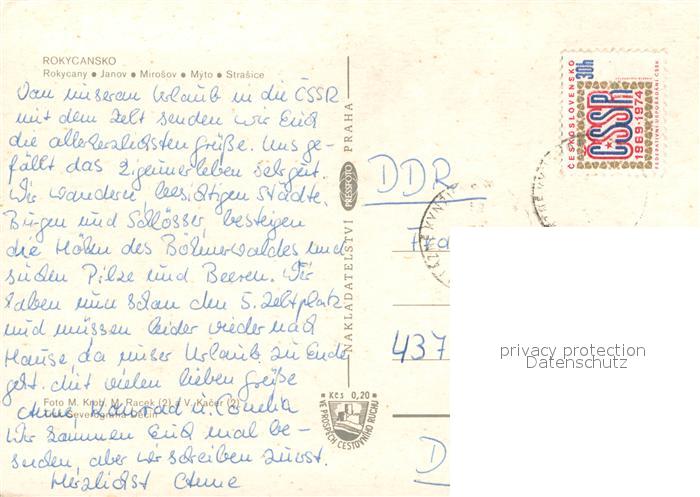 ROKYCANSKO
Rokycany • Janov • Mirošov • Mýto • Strašice
Von unserem Urlaub in die ČSSR
mit dem Zelt senden wir Euch
die allerherzlichsten Grüße. Uns ge-
fällt das Zigeunerleben sehr gut.
Wir wandern, besichtigen Städte,
Burgen und Schlösser, besteigen
die Höhen des Böhmerwaldes und
suchen Pilze und Beeren. Wir
haben nun schon den 5. Zeltplatz
und müssen leider wieder nach
Hause da unser Urlaub zu Ende
geht. Mit vielen lieben Grüße
Foto M. Krob, M. Racek (2) a V. Kačer (2)
Anne, Konrad u.
Severografia Děčín
Wir kommen Euch mal be-
suchen, aber wir schreiben zuvor.
Herzlichst Anne
NAKLADATELSTVÍ PRESSFOTO PRAHA
Kčs 0,20
VE PROSPĚCH CESTOVNÍHO RUCHU
DDR
437
D
ČESKOSLOVENSKO
30h
ČSSR
1969-1974
FEDERATIVNÍ USPOŘÁDÁNÍ ČSSR
privacy protection
Datenschutz